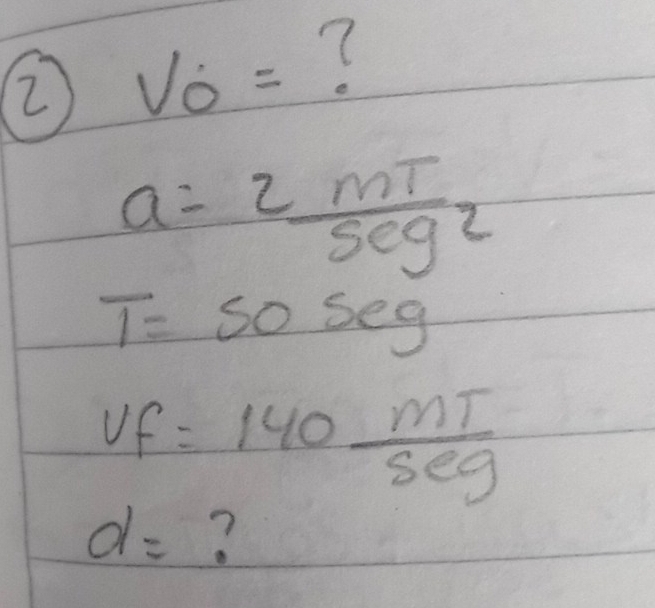 ② Vo = ?
a = 2 mT/seg²
T = 50 seg
Vf = 140 mT/seg
d = ?